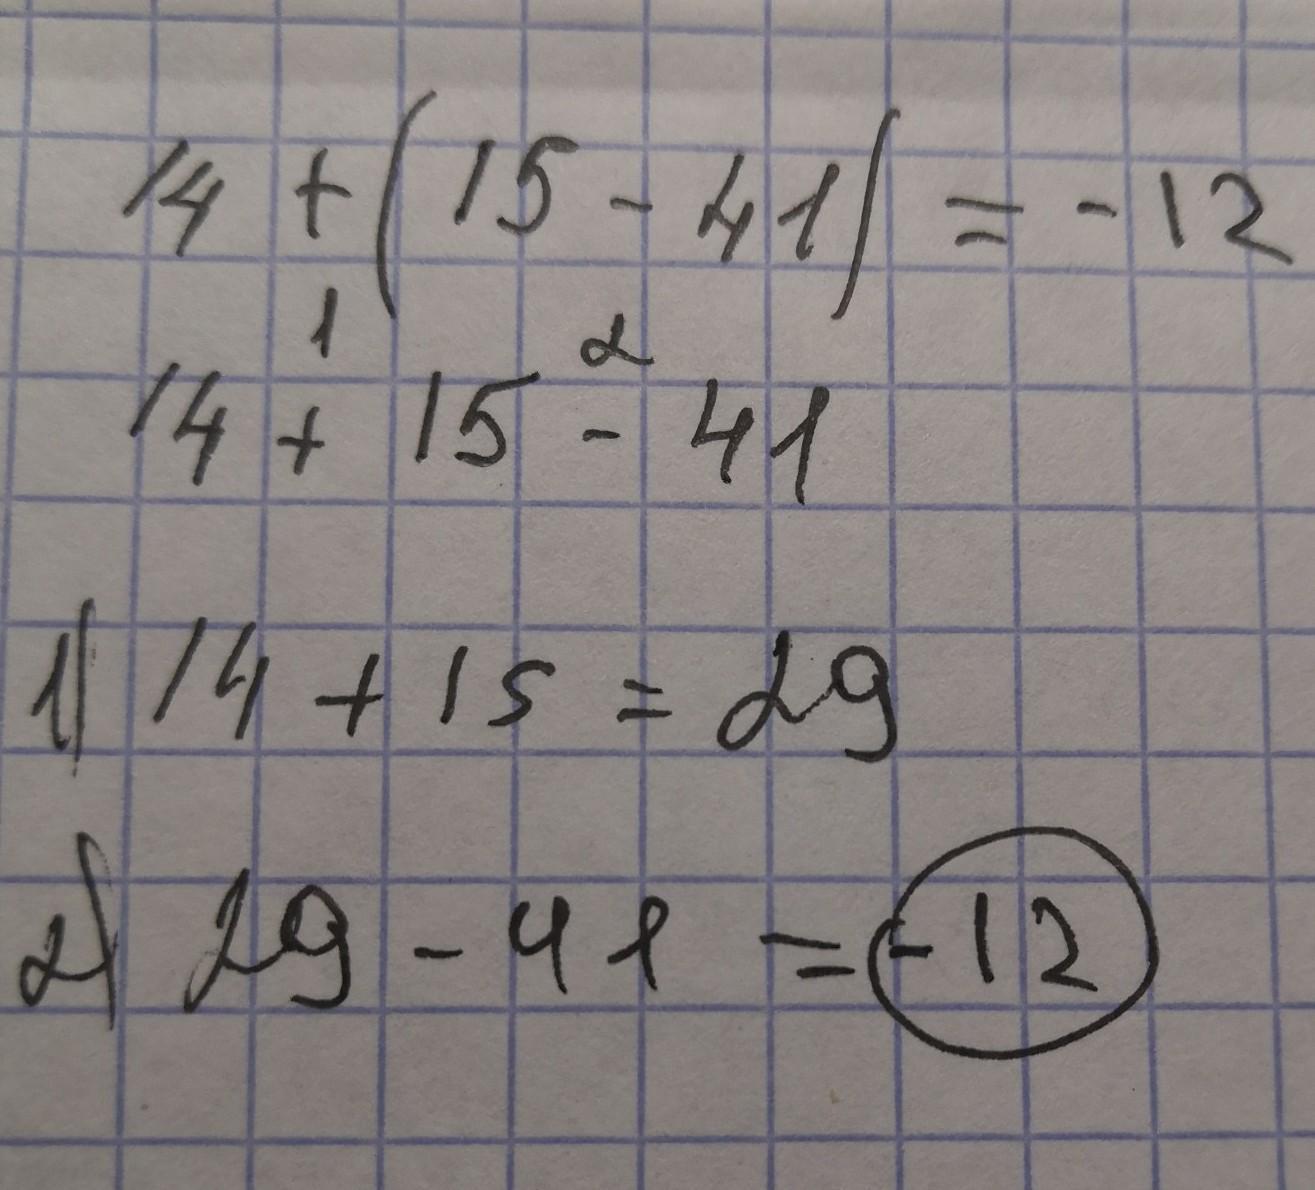 14 + (15 - 41) = -12
1 2
14 + 15 - 41
1) 14 + 15 = 29
2) 29 - 41 = -12